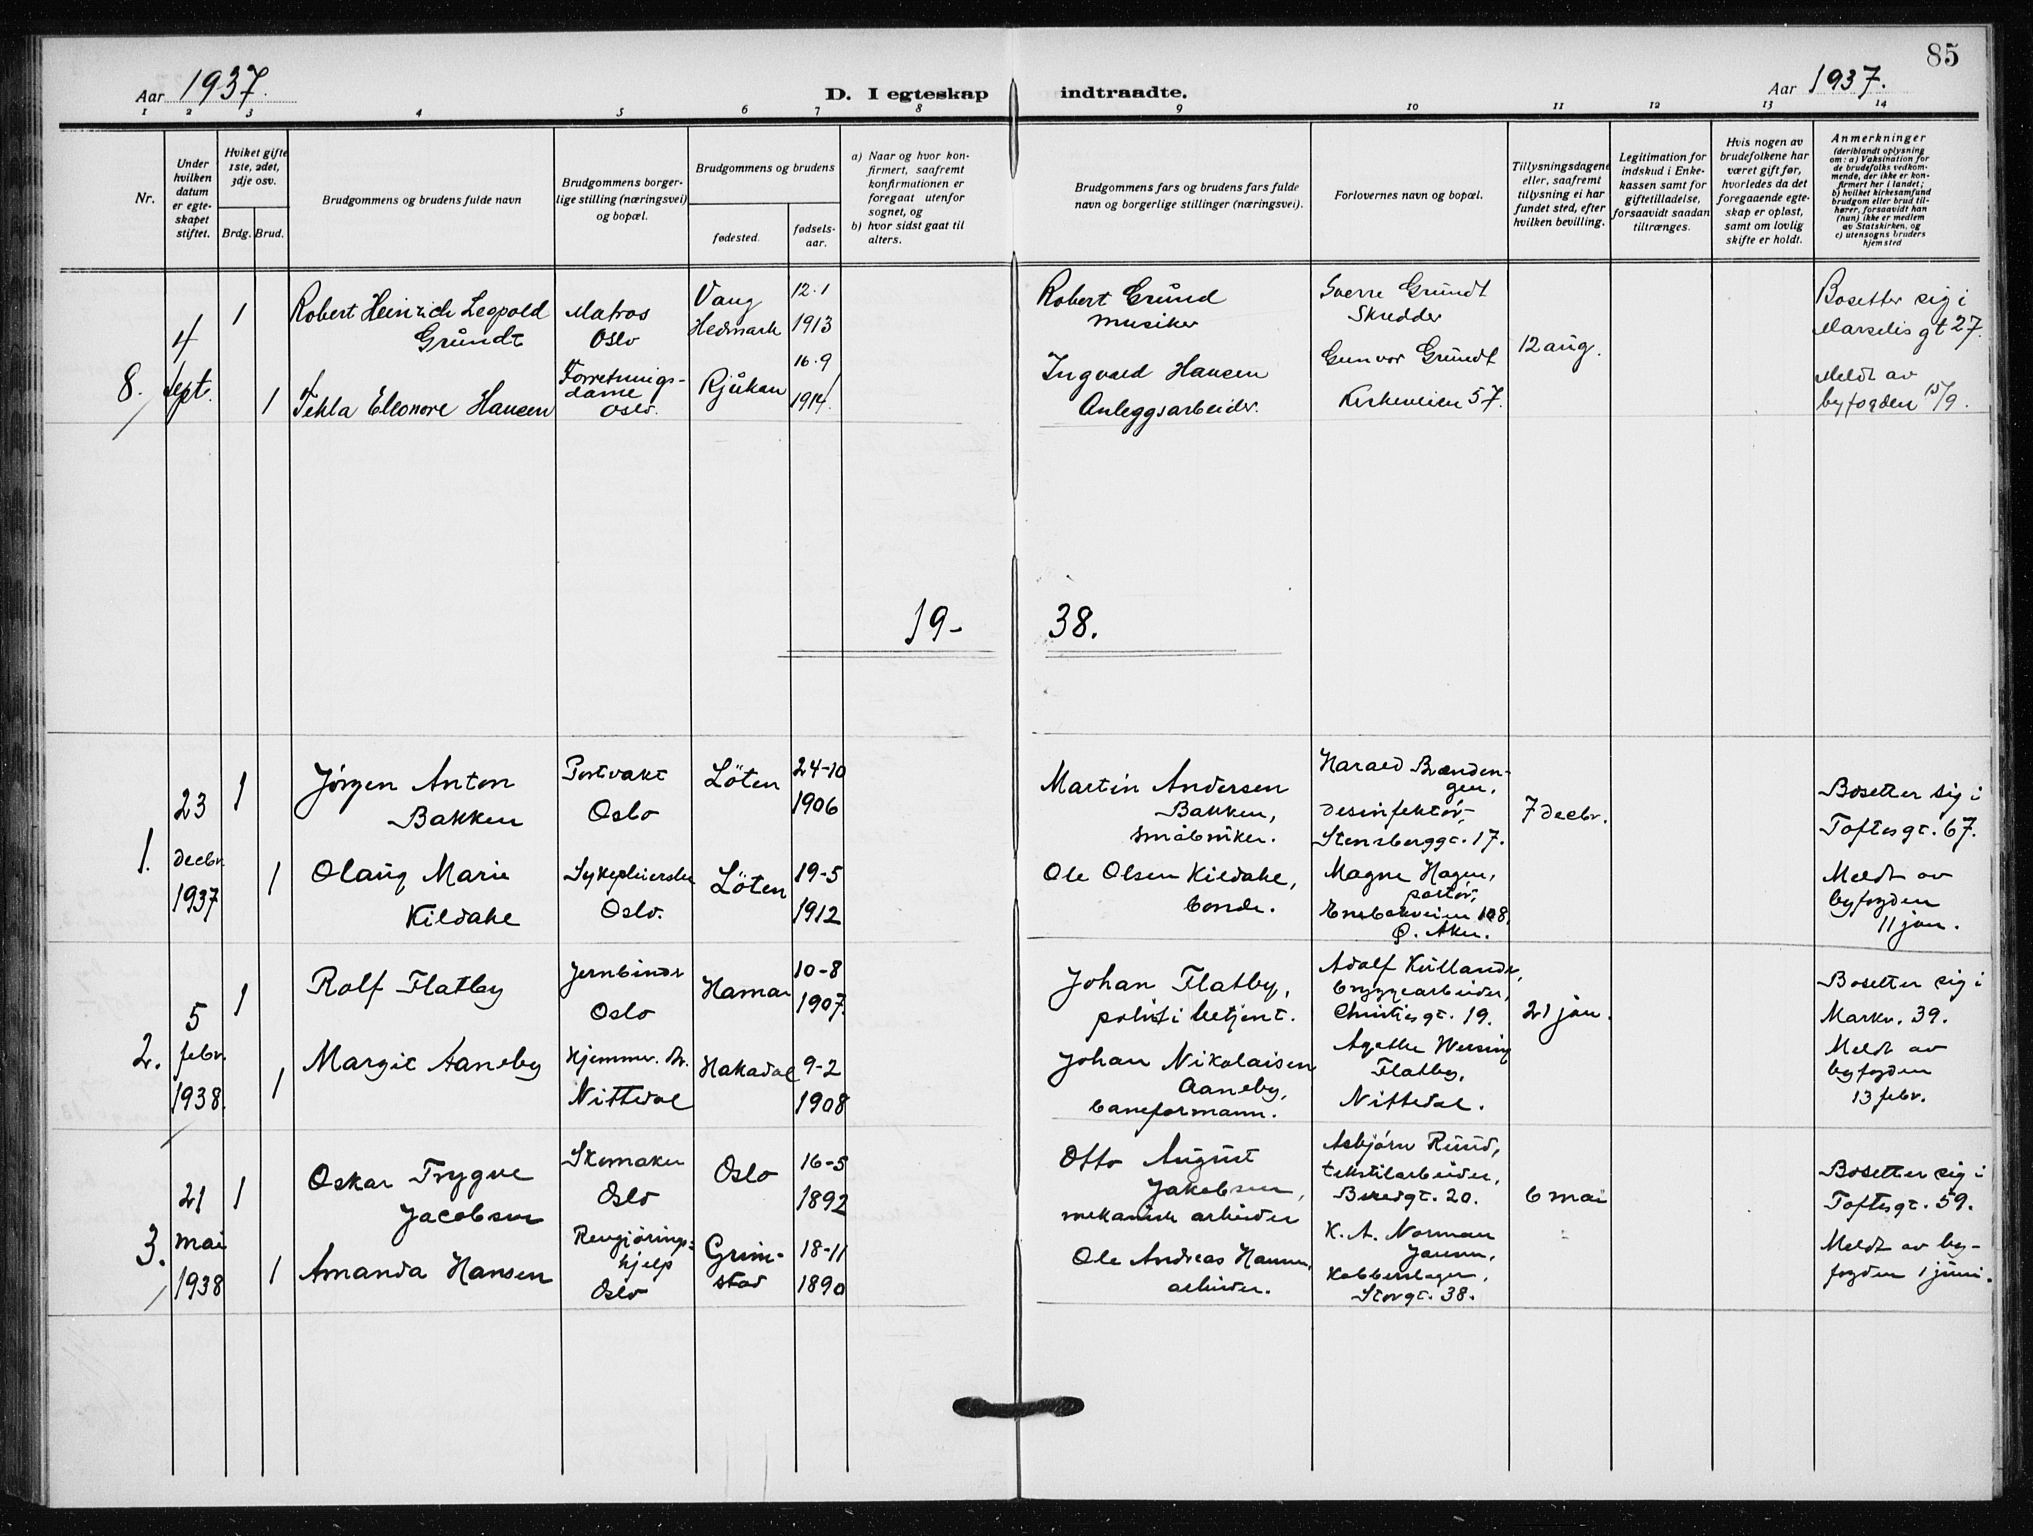 85
Aar 1937.
D. I egteskap indtraadte.
Aar 1937.
1 2 3 4 5 6 7 8 9 10 11 12 13 14
Nr.
Under
hvilken
datum
er egte-
skapet
stiftet.
Hviket gifte
1ste, 2det,
3dje osv.
Brdg. Brud.
Brudgommens og brudens fulde navn
Brudgommens borger-
lige stilling (næringsvei)
og bopæl.
Brudgommens og brudens
fødested.
fødsels-
aar.
a) Naar og hvor kon-
firmert, saafremt
konfirmationen er
foregaat utenfor
sognet, og
b) hvor sidst gaat til
alters.
Brudgommens fars og brudens fars fulde
navn og borgerlige stillinger (næringsvei).
Forlovernes navn og bopæl.
Tillysningsdagene
eller, saafremt
tillysning ei har
fundet sted, efter
hvilken bevilling.
Legitimation for
indskud i Enke-
kassen samt for
giftetilladelse,
forsaavidt saadan
tiltrænges.
Hvis nogen av
brudefolkene har
været gift før,
hvorledes da det
foregaaende egte-
skap er opløst,
samt om lovlig
skifte er holdt.
Anmerkninger
(deriblandt oplysning
om: a) Vaksination for
de brudefolks vedkom-
mende, der ikke er kon-
firmert her i landet;
b) hvilket kirkesamfund
brudgom eller brud til-
hører, forsaavidt han
(hun) ikke er medlem
av Statskirken, og
c) utensogns bruders
hjemsted
8.
4
sept.
1
Robert Heinrich Leopold
Gründt
Matros
Oslo
Vang
Hedmark
12-1
1913
Robert Gründ
musiker
Sverre Gründt
Skredder
12 aug.
Bosetter sig i
Marselis gt 27.
1
Tekla Eleonore Hansen
Forretnings-
dame
Oslo.
Rjukan
16-9
1914
Ingvald Hansen
Anleggsarbeider.
Gunvor Gründt
Kirkeveien 57.
Meldt av
byfogden 15/9.
19- 38.
1.
23
decbr.
1937
1
Jörgen Anton
Bakken
Portvakt
Oslo
Löten
24-10
1906
Martin Andersen
Bakken,
småbruker.
Harald Brænden-
gen,
desinfektör,
Stensberggt. 17.
7 decbr.
Bosetter sig i
Toftesgt. 67.
1
Olaug Marie
Kildahl
Sykepleierske
Oslo.
Löten
19-5
1912
Ole Olsen Kildahl,
bonde.
Magne Hagen,
portör,
Ensbakveien 108,
Ö. Aker.
Meldt av
byfogden
11 jan.
2.
5
febr.
1938.
1
Rolf Flatby
Jernbinder
Oslo
Hamar
10-8
1907.
Johan Flatby,
politibetjent.
Adolf Küllander,
bryggearbeider,
Christiesgt. 19.
21 jan.
Bosetter sig i
Markv. 39.
1
Margit Aaneby
Hjemmev. Dr.
Nittedal
Hakadal
9-2
1908
Johan Nikolaisen
Aaneby,
baneformann.
Agathe Wersing
Flatby,
Nittedal.
Meldt av
byfogden
13 febr.
3.
21
mai
1938
1
Oskar Trygve
Jacobsen
Skomaker
Oslo
Oslo
16-5
1892
Otto August
Jakobsen,
mekanisk arbeider
Asbjörn Ruud,
tekstilarbeider,
Biredgt. 20.
6 mai
Bosetter sig i
Toftesgt. 59.
1
Amanda Hansen
Rengjörings-
hjelp
Oslo
Grim-
stad
18-11
1890
Ole Andreas Hansen,
arbeider.
K. A. Norman
Jensen,
Kobberslager,
Storgt. 38.
Meldt av by-
fogden 1 juni.